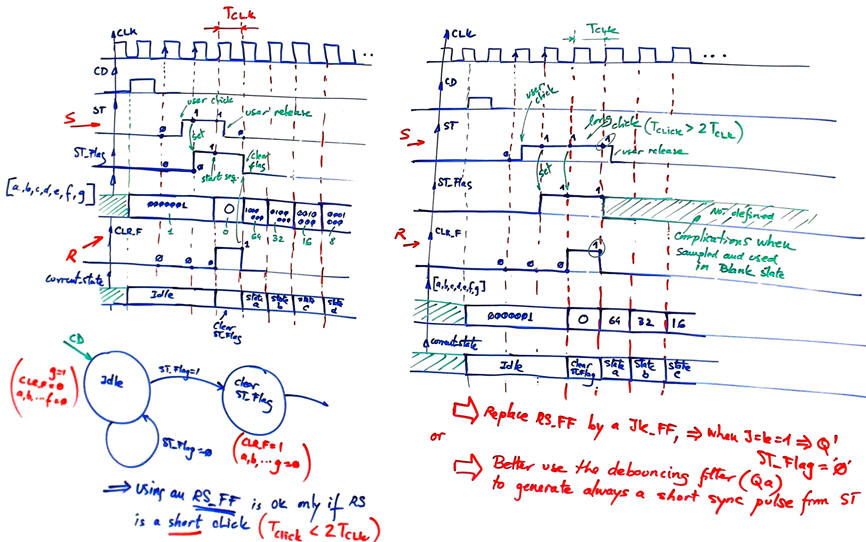 TCLK
CLK
CD
ST
S
user click
1 1
user release
0 0
set
ST_Flag
1
0 0
start seq.
clear flag
[a,b,c,d,e,f,g]
0000001 0 1000 000 0100 000 0010 000 0001 000
1 0 64 32 16 8
R
CLR_F
1
0 0 0
current_state
Idle state a state b state c state d
Clear ST_Flag
CD
g=1
CLR_F=0
a,b,...f=0
Idle
ST_Flag=1
clear ST_Flag
ST_Flag=0
CLR_F=1
a,b,...g=0
⇒ Using an RS_FF is ok only if RS
is a short click (Tclick < 2TCLK)
TCLK
CLK
CD
user click
ST
S
1 1 1
long click (TCLICK > 2TCLK)
user release
0
set
ST_Flag
1 1
Not defined
Complications when
sampled and used
in Blank state
R
CLR_F
1
0 0 0
[a,b,c,d,e,f,g]
0000001 0 64 32 16
current state
Idle Clear ST_Flag state a state b state c
⇒ Replace RS_FF by a JK_FF, ⇒ when J=k=1 ⇒ Q'
ST_Flag='0'
or
⇒ Better use the debouncing filter (Qa)
to generate always a short sync pulse from ST